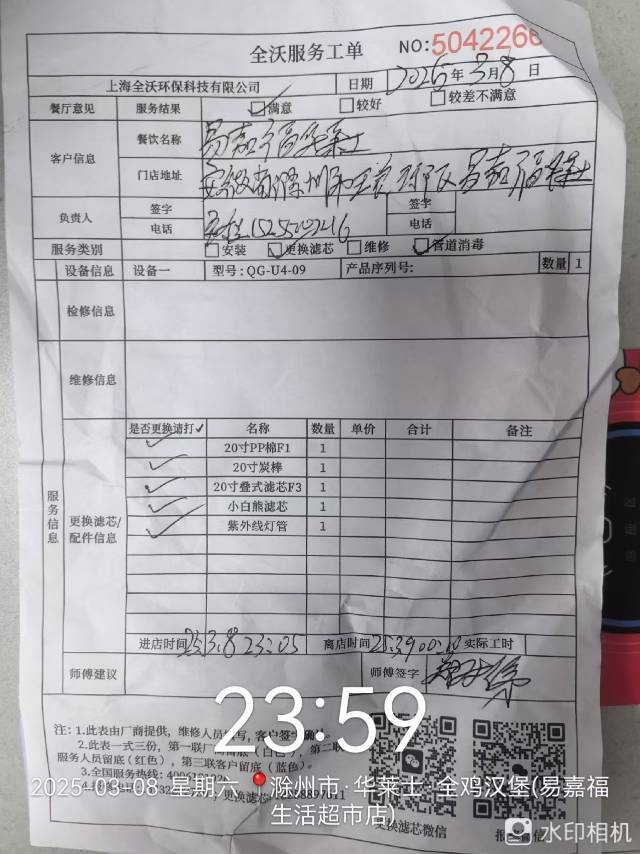 全沃服务工单
NO:5042266
上海全沃环保科技有限公司 日期 2025年3月8日
餐厅意见 服务结果 满意 较好 较差不满意
客户信息 餐饮名称 易嘉福华莱士
门店地址 安徽省滁州市 易嘉福华莱士
负责人 签字 签字
电话 电话
服务类别 安装 更换滤芯 维修 管道消毒
设备信息 设备一 型号:QG-U4-09 产品序列号: 数量 1
检修信息
维修信息
服务信息
更换滤芯/配件信息
是否更换请打✓ 名称 数量 单价 合计 备注
✓ 20寸PP棉F1 1
✓ 20寸炭棒 1
✓ 20寸叠式滤芯F3 1
✓ 小白熊滤芯 1
✓ 紫外线灯管 1
进店时间 25.3.8 23:05 离店时间 25.3.9 00:10 实际工时
师傅建议 师傅签字
注: 1.此表由厂商提供，维修人员填写，客户签字确认。
2.此表一式三份，第一联厂商留底（白色），第二联
服务人员留底（红色），第三联客户留底（蓝色）。
3.全国服务热线:
更换滤芯
更换滤芯微信
23:59
2025-03-08 星期六 滁州市·华莱士·全鸡汉堡(易嘉福
生活超市店)
水印相机